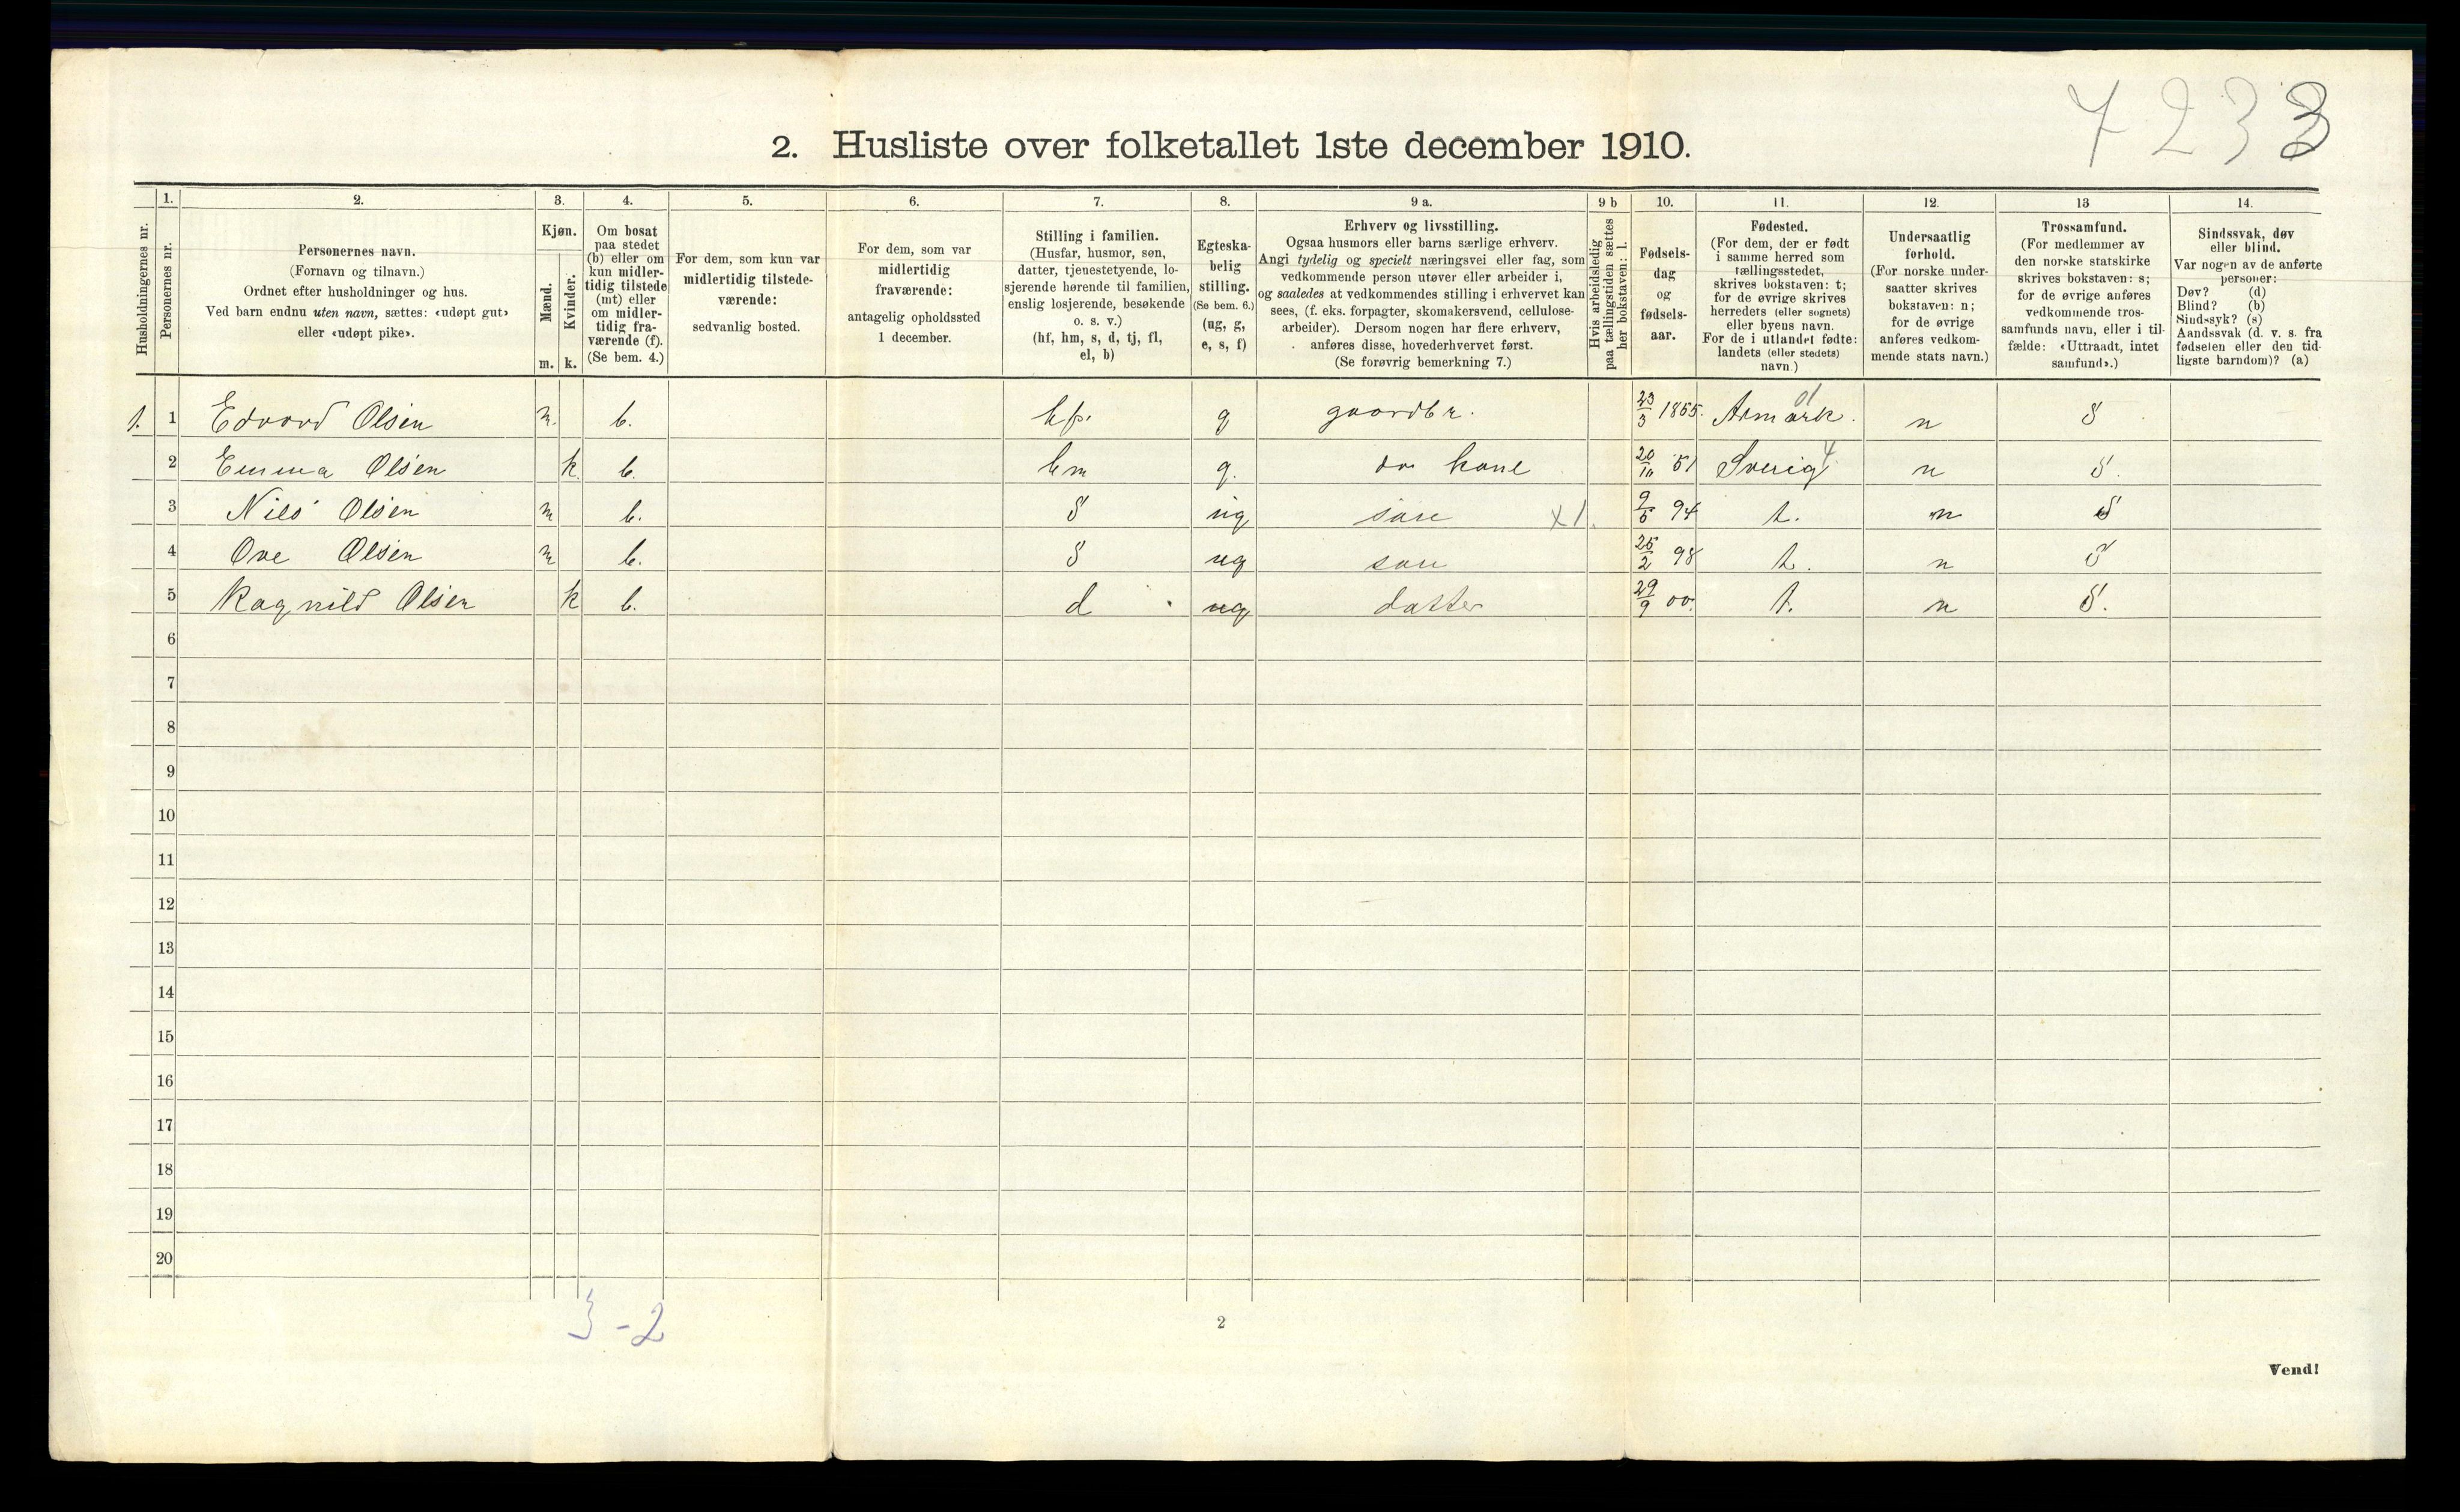 7233
2. Husliste over folketallet 1ste december 1910.
Husholdningernes nr.
1. Personernes nr.
2. Personernes navn.
(Fornavn og tilnavn.)
Ordnet efter husholdninger og hus.
Ved barn endnu uten navn, sættes: «udøpt gut»
eller «udøpt pike».
3. Kjøn.
Mænd. m.
Kvinder. k.
4. Om bosat
paa stedet
(b) eller om
kun midler-
tidig tilstede
(mt) eller
om midler-
tidig fra-
værende (f).
(Se bem. 4.)
5. For dem, som kun var
midlertidig tilstede-
værende:
sedvanlig bosted.
6. For dem, som var
midlertidig
fraværende:
antagelig opholdssted
1 december.
7. Stilling i familien.
(Husfar, husmor, søn,
datter, tjenestetyende, lo-
sjerende hørende til familien,
enslig losjerende, besøkende
o. s. v.)
(hf, hm, s, d, tj, fl,
el, b)
8. Egteska-
belig
stilling.
(Se bem. 6.)
(ug, g,
e, s, f)
9 a. Erhverv og livsstilling.
Ogsaa husmors eller barns særlige erhverv.
Angi tydelig og specielt næringsvei eller fag, som
vedkommende person utøver eller arbeider i,
og saaledes at vedkommendes stilling i erhvervet kan
sees, (f. eks. forpagter, skomakersvend, cellulose-
arbeider). Dersom nogen har flere erhverv,
anføres disse, hovederhvervet først.
(Se forøvrig bemerkning 7.)
9 b Hvis arbeidsledig
paa tællingstiden sættes
her bokstaven: l.
10. Fødsels-
dag
og
fødsels-
aar.
11. Fødested.
(For dem, der er født
i samme herred som
tællingsstedet,
skrives bokstaven: t;
for de øvrige skrives
herredets (eller sognets)
eller byens navn.
For de i utlandet fødte:
landets (eller stedets)
navn.)
12. Undersaatlig
forhold.
(For norske under-
saatter skrives
bokstaven: n;
for de øvrige
anføres vedkom-
mende stats navn.)
13 Trossamfund.
(For medlemmer av
den norske statskirke
skrives bokstaven: s;
for de øvrige anføres
vedkommende tros-
samfunds navn, eller i til-
fælde: «Uttraadt, intet
samfund».)
14. Sindssvak, døv
eller blind.
Var nogen av de anførte
personer:
Døv? (d)
Blind? (b)
Sindssyk? (s)
Aandssvak (d. v. s. fra
fødselen eller den tid-
ligste barndom)? (a)
1. 1 Edvard Olsen m. b. hf. g gaardbr. 23/3 1855. Aremark. 01 n S
2 Emma Olsen k b. hm g. do kone 20/10 51 Sverig 4 n S.
3 Nils Olsen m b. S ug søn x1. 9/5 94 t. n S
4 Ove Olsen m b. S ug søn 25/2 98 t. n S
5 Ragnild Olsen k b. d ug datter 29/9 00. t. n S.
6
7
8
9
10
11
12
13
14
15
16
17
18
19
20
3-2
2
Vend!